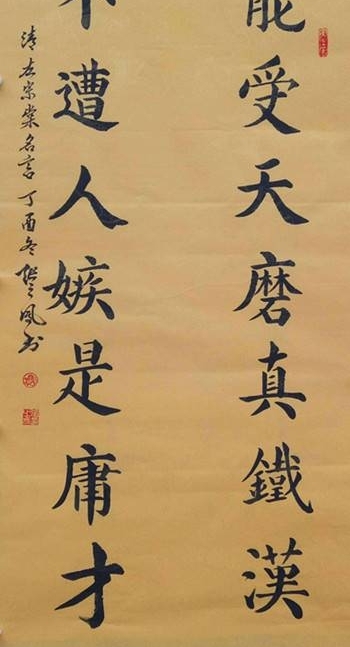 能受天磨真鐵漢
不遭人嫉是庸才
清左宗棠名言丁酉冬